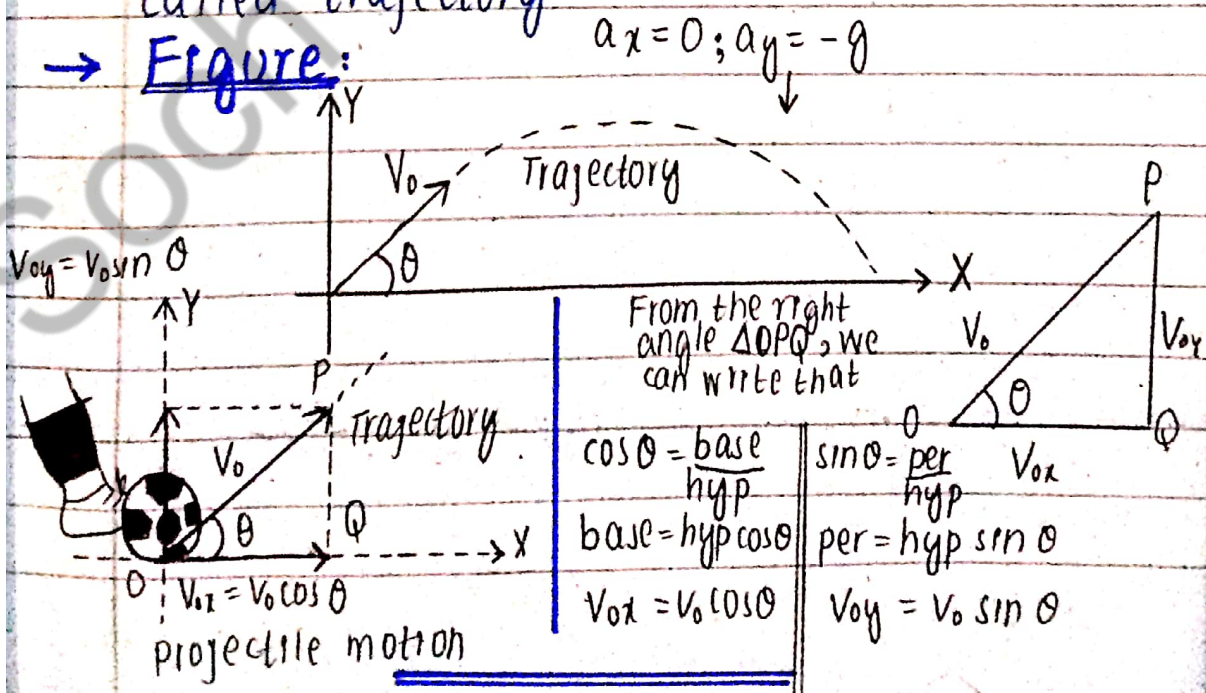 called trajectory
→ Figure:
ax = 0 ; ay = -g
Y
V₀
Trajectory
θ
X
Voy = V₀ sin θ
Y
P
Trajectory.
V₀
θ
Q
X
O
Vox = V₀ cos θ
projectile motion
From the right
angle ΔOPQ, we
can write that
P
V₀
Voy
θ
O
Q
Vox
cosθ = base/hyp
base = hyp cosθ
Vox = V₀ cosθ
sinθ = per/hyp
per = hyp sin θ
Voy = V₀ sin θ
Soch